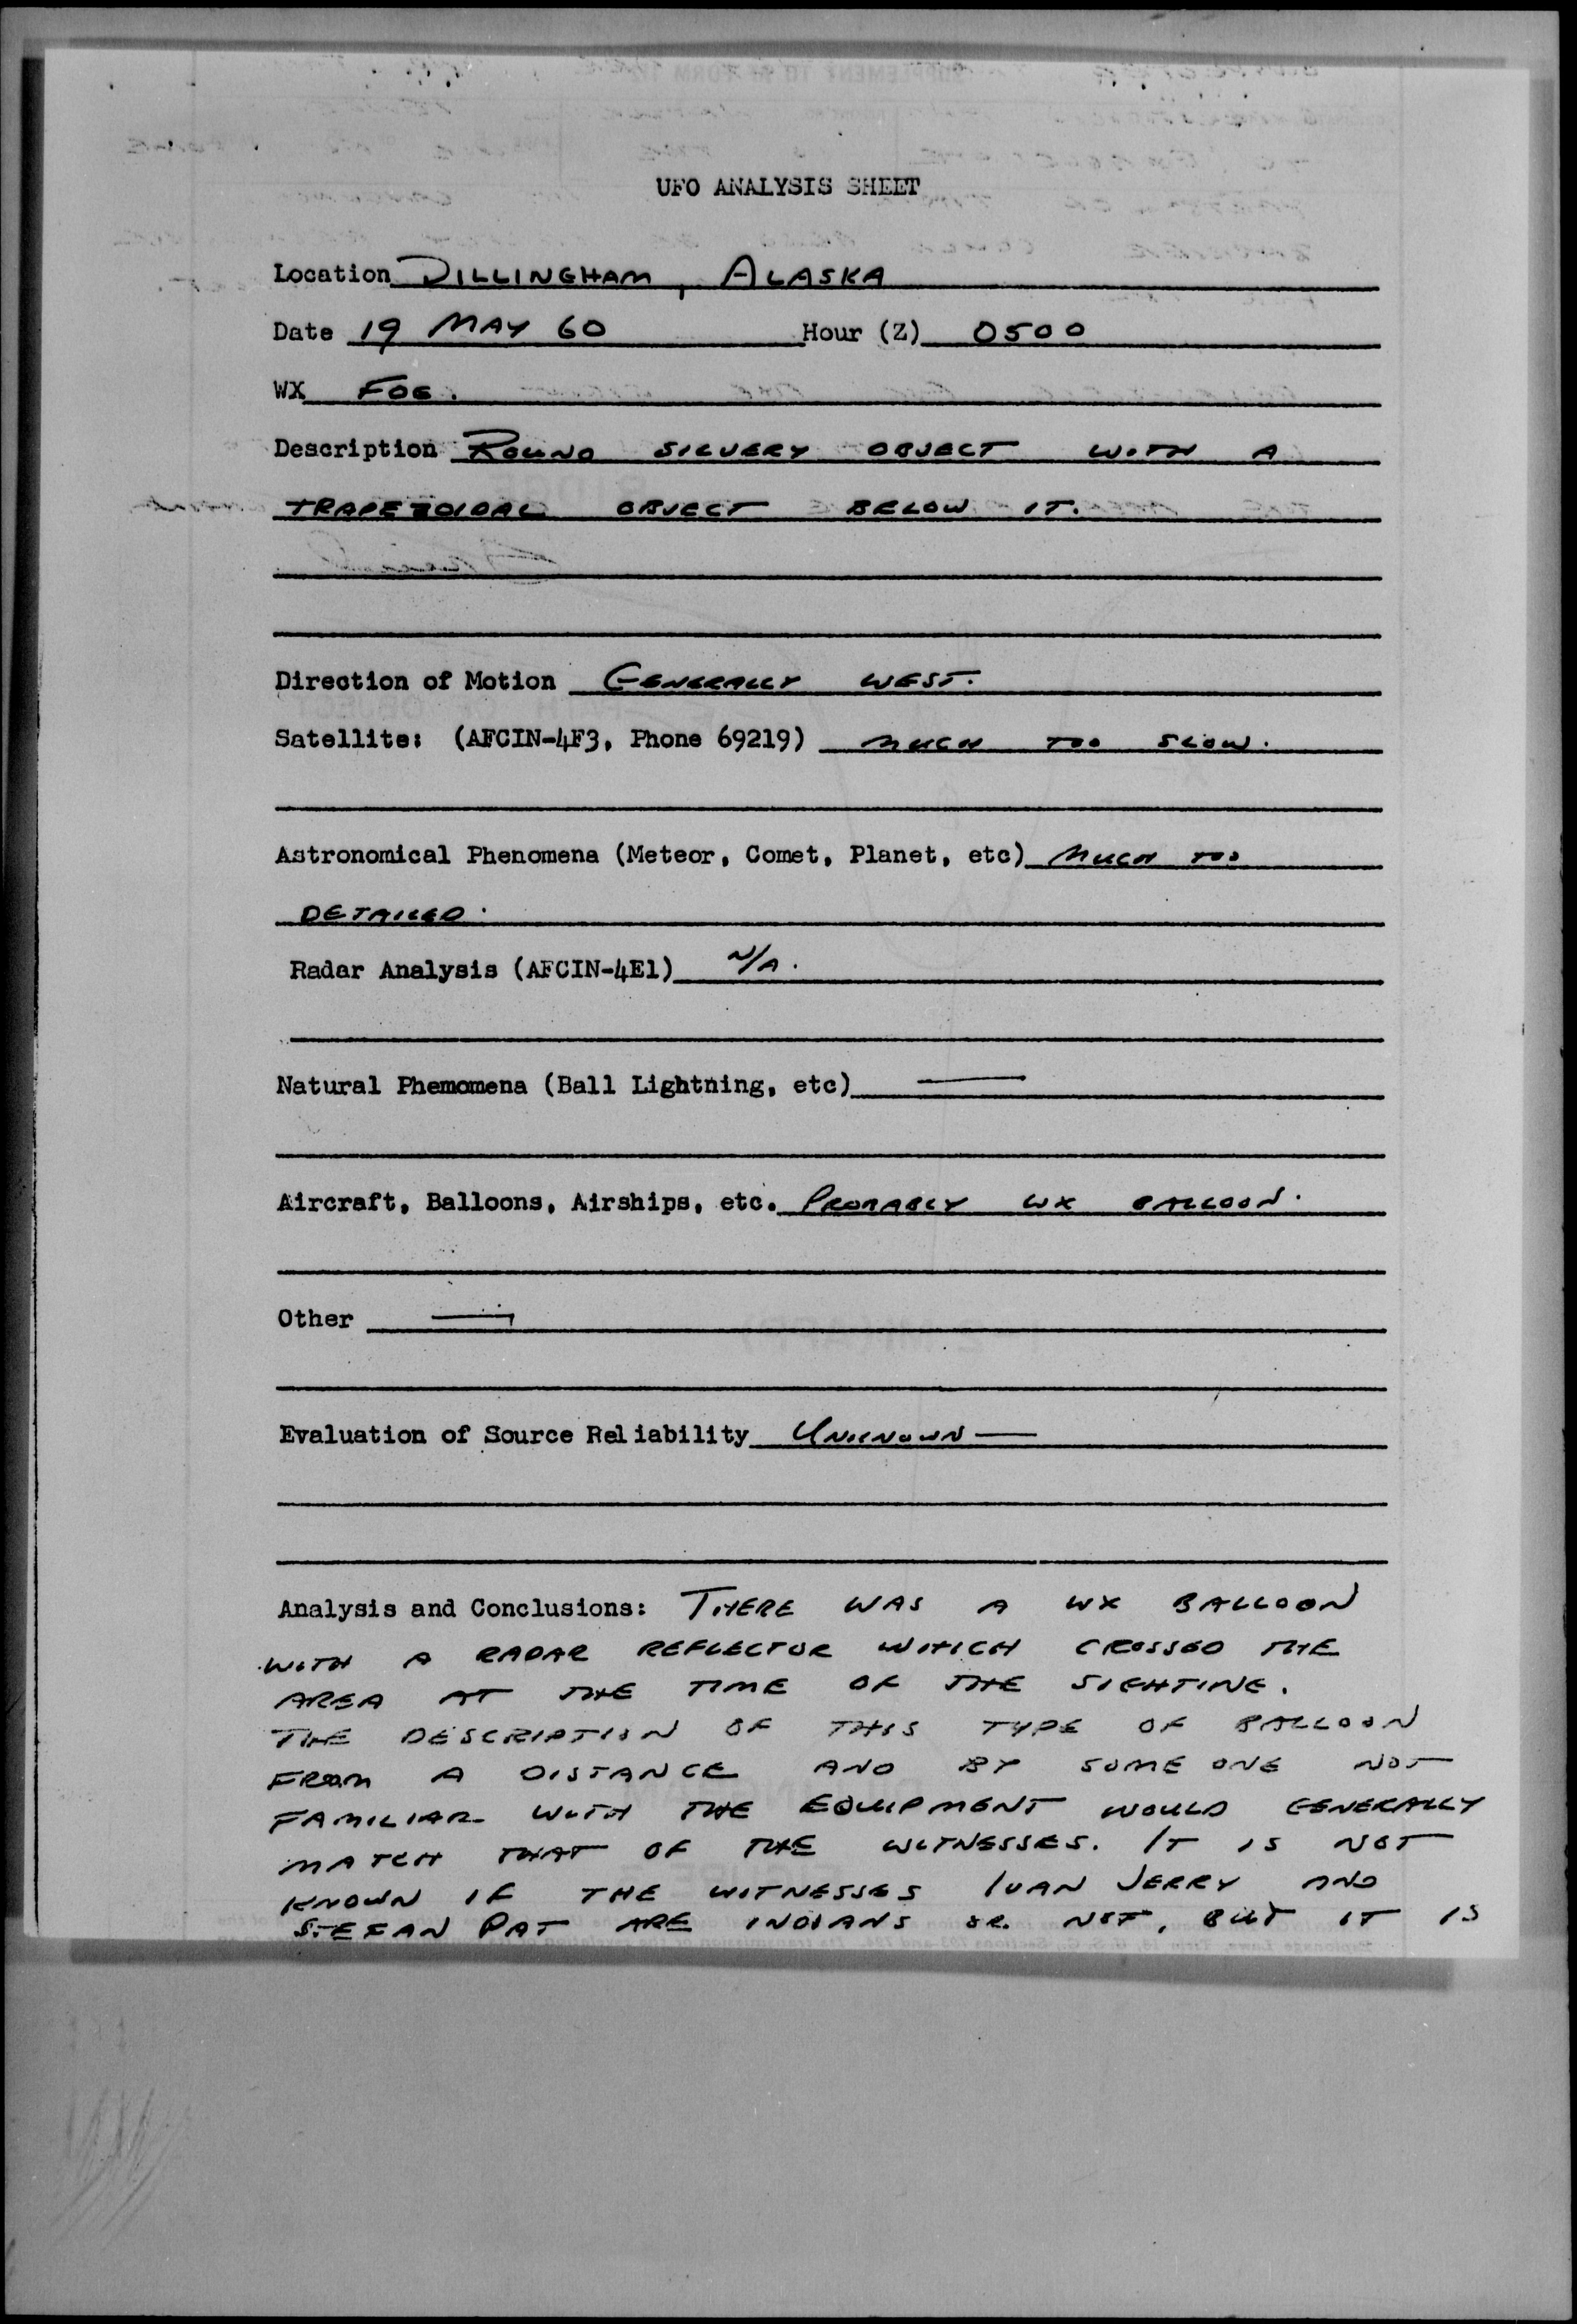 UFO ANALYSIS SHEET
Location DILLINGHAM, ALASKA
Date 19 MAY 60 Hour (Z) 0500
WX FOG.
Description ROUND SILVERY OBJECT WITH A
TRAPEZOIDAL OBJECT BELOW IT.
Direction of Motion GENERALLY WEST.
Satellite: (AFCIN-4F3, Phone 69219) MUCH TOO SLOW.
Astronomical Phenomena (Meteor, Comet, Planet, etc) MUCH TOO
DETAILED.
Radar Analysis (AFCIN-4E1) N/A.
Natural Phemomena (Ball Lightning, etc) —
Aircraft, Balloons, Airships, etc. PROBABLY WX BALLOON.
Other —
Evaluation of Source Reliability UNKNOWN —
Analysis and Conclusions: THERE WAS A WX BALLOON
WITH A RADAR REFLECTOR WHICH CROSSED THE
AREA AT THE TIME OF THE SIGHTING.
THE DESCRIPTION OF THIS TYPE OF BALLOON
FROM A DISTANCE AND BY SOME ONE NOT
FAMILIAR WITH THE EQUIPMENT WOULD GENERALLY
MATCH THAT OF THE WITNESSES. IT IS NOT
KNOWN IF THE WITNESSES IVAN JERRY AND
STEFAN PAT ARE INDIANS OR NOT, BUT IT IS